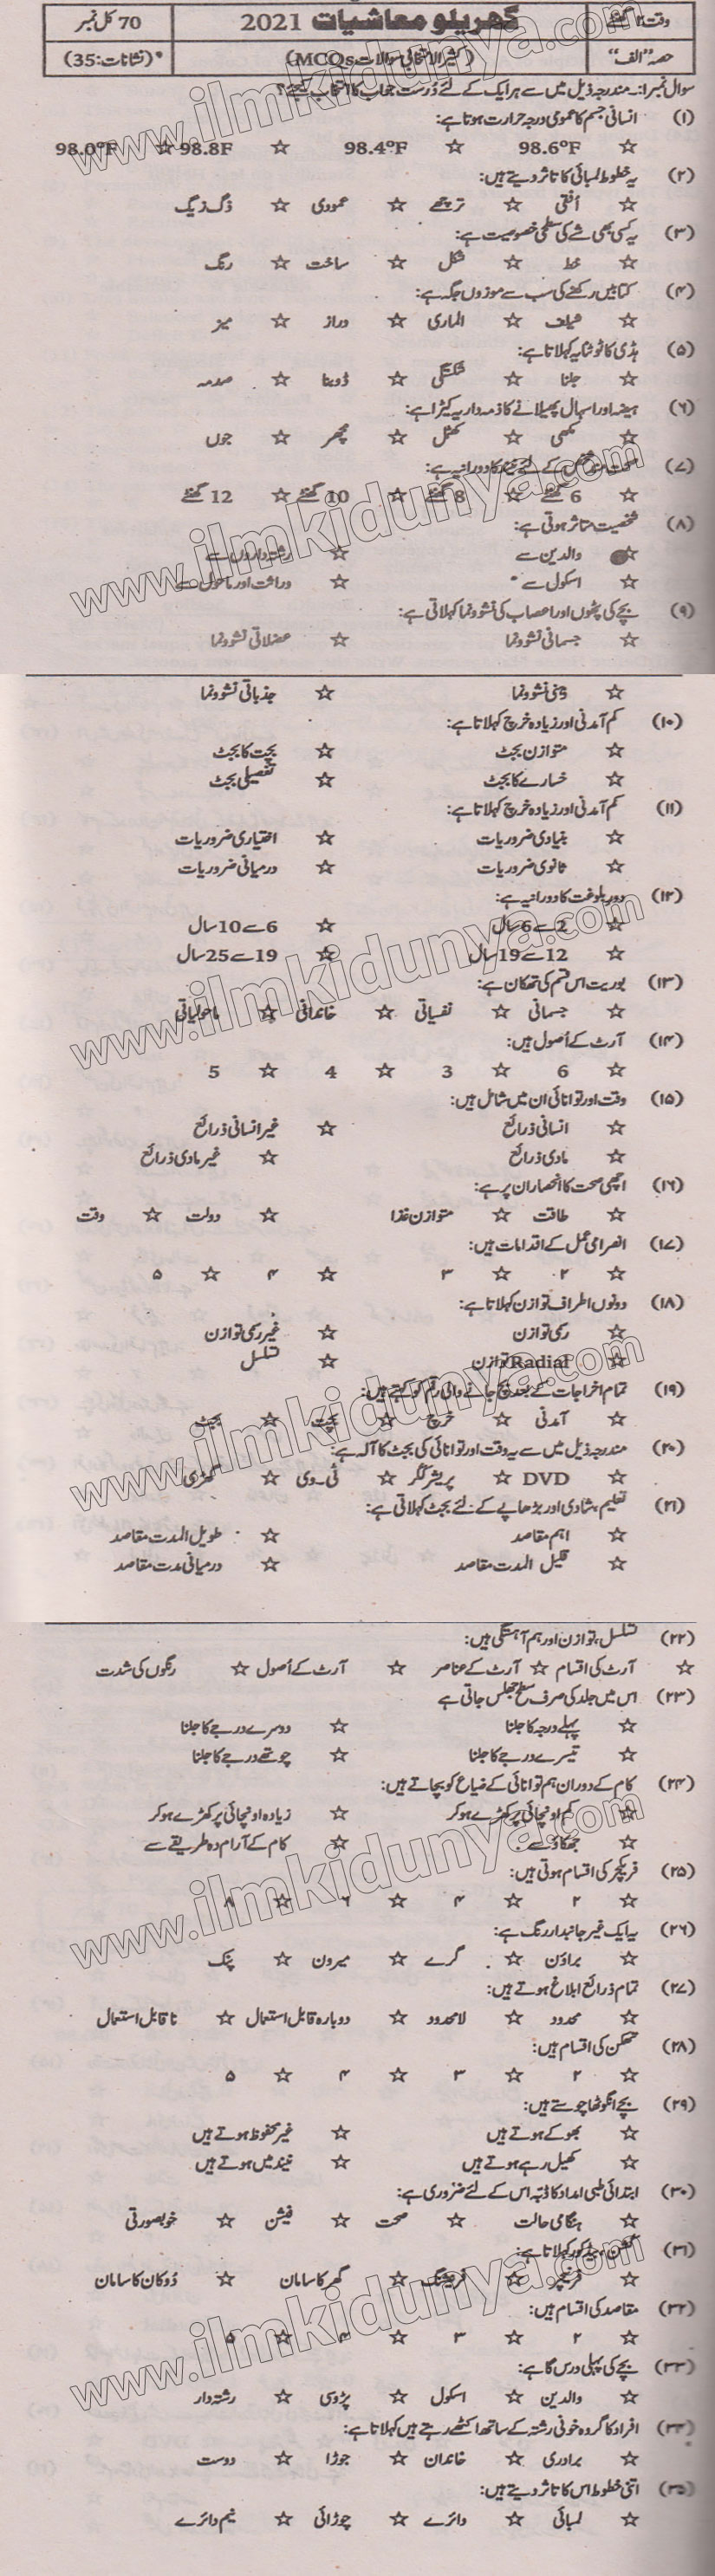 وقت: ۲ گھنٹے گھریلو معاشیات 2021 کل نمبر 70
حصہ "الف" (کثیر الانتخابی سوالات MCQs) (نشانات: 35)
سوال نمبر ا: مندرجہ ذیل میں سے ہر ایک کے لئے دُرست جواب کا انتخاب کیجئے؟
(۱) انسانی جسم کا عمومی درجہ حرارت ہوتا ہے:
☆ 98.6°F ☆ 98.4°F ☆ 98.8F ☆ 98.0°F
(۲) یہ خطوط لمبائی کا تاثر دیتے ہیں:
☆ اُفقی ☆ ترچھے ☆ عمودی ☆ ذگ زیگ
(۳) یہ کسی بھی شے کی سطحی خصوصیت ہے:
☆ خط ☆ شکل ☆ ساخت ☆ رنگ
(۴) کتابیں رکھنے کی سب سے موزوں جگہ ہے:
☆ شیلف ☆ الماری ☆ دراز ☆ میز
(۵) ہڈی کا ٹوٹنا یہ کہلاتا ہے:
☆ جلنا ☆ شکستگی ☆ ڈوبنا ☆ صدمہ
(۶) ہیضہ اور اسہال پھیلانے کا ذمہ دار یہ کیڑا ہے:
☆ مکھی ☆ کھٹمل ☆ مچھر ☆ جوں
(۷) صحت مند شخص کے لئے نیند کا دورانیہ ہے:
☆ 6 گھنٹے ☆ 8 گھنٹے ☆ 10 گھنٹے ☆ 12 گھنٹے
(۸) شخصیت متاثر ہوتی ہے:
☆ والدین سے ☆ رشتہ داروں سے
☆ اسکول سے ☆ وراثت اور ماحول سے
(۹) بچے کی پٹھوں اور اعصاب کی نشوونما کہلاتی ہے:
☆ جسمانی نشوونما ☆ عضلاتی نشوونما
☆ ذہنی نشوونما ☆ جذباتی نشوونما
(۱۰) کم آمدنی اور زیادہ خرچ کہلاتا ہے:
☆ متوازن بجٹ ☆ بچت کا بجٹ
☆ خسارے کا بجٹ ☆ تفصیلی بجٹ
(۱۱) کم آمدنی اور زیادہ خرچ کہلاتا ہے:
☆ بنیادی ضروریات ☆ اختیاری ضروریات
☆ ثانوی ضروریات ☆ درمیانی ضروریات
(۱۲) دور بلوغت کا دورانیہ ہے:
☆ 2 سے 6 سال ☆ 6 سے 10 سال
☆ 12 سے 19 سال ☆ 19 سے 25 سال
(۱۳) بوریت اس قسم کی تھکان ہے:
☆ جسمانی ☆ نفسیاتی ☆ خاندانی ☆ ماحولیاتی
(۱۴) آرٹ کے اُصول ہیں:
☆ 6 ☆ 3 ☆ 4 ☆ 5
(۱۵) وقت اور توانائی ان میں شامل ہیں:
☆ انسانی ذرائع ☆ غیر انسانی ذرائع
☆ مادی ذرائع ☆ غیر مادی ذرائع
(۱۶) اچھی صحت کا انحصار ان پر ہے:
☆ طاقت ☆ متوازن غذا ☆ دولت ☆ وقت
(۱۷) انصرامی عمل کے اقدامات ہیں:
☆ ۲ ☆ ۳ ☆ ۴ ☆ ۵
(۱۸) دونوں اطراف توازن کہلاتا ہے:
☆ رسمی توازن ☆ غیر رسمی توازن
☆ Radial توازن ☆ تسلسل
(۱۹) تمام اخراجات کے بعد بچ جانے والی رقم کو کہتے ہیں:
☆ آمدنی ☆ خرچ ☆ بچت ☆ بجٹ
(۲۰) مندرجہ ذیل میں سے یہ وقت اور توانائی کی بچت کا آلہ ہے:
☆ DVD ☆ پریشر ککر ☆ ٹی۔وی ☆ گھڑی
(۲۱) تعلیم، شادی اور بڑھاپے کے لئے بجٹ کہلاتی ہے:
☆ اہم مقاصد ☆ طویل المدت مقاصد
☆ قلیل المدت مقاصد ☆ درمیانی مدت مقاصد
(۲۲) تسلسل، توازن اور ہم آہنگی ہیں:
☆ آرٹ کی اقسام ☆ آرٹ کے عناصر ☆ آرٹ کے اُصول ☆ رنگوں کی شدت
(۲۳) اس میں جلد کی صرف سطح جھلس جاتی ہے
☆ پہلے درجہ کا جلنا ☆ دوسرے درجے کا جلنا
☆ تیسرے درجے کا جلنا ☆ چوتھے درجے کا جلنا
(۲۴) کام کے دوران ہم توانائی کے ضیاع کو بچاتے ہیں:
☆ کم اونچائی پر کھڑے ہو کر ☆ زیادہ اونچائی پر کھڑے ہو کر
☆ جھکاؤ سے ☆ کام کے آرام دہ طریقے سے
(۲۵) فریکچر کی اقسام ہوتی ہیں:
☆ ۲ ☆ ۴ ☆ ۶ ☆ ۸
(۲۶) یہ ایک غیر جانبدار رنگ ہے:
☆ براؤن ☆ گرے ☆ میرون ☆ پنک
(۲۷) تمام ذرائع ابلاغ ہوتے ہیں:
☆ محدود ☆ لامحدود ☆ دوبارہ قابل استعمال ☆ ناقابل استعمال
(۲۸) تھکن کی اقسام ہیں:
☆ ۲ ☆ ۳ ☆ ۴ ☆ ۵
(۲۹) بچے انگوٹھا چوستے ہیں:
☆ بھوکے ہوتے ہیں ☆ غیر محفوظ ہوتے ہیں
☆ کھیل رہے ہوتے ہیں ☆ نیند میں ہوتے ہیں
(۳۰) ابتدائی طبی امداد کا ڈبہ اس کے لئے ضروری ہے:
☆ ہنگامی حالت ☆ صحت ☆ فیشن ☆ خوبصورتی
(۳۱) کشن، بیڈ کور کہلاتا ہے:
☆ فرنیچر ☆ فرنیشنگ ☆ گھر کا سامان ☆ دُوکان کا سامان
(۳۲) مقاصد کی اقسام ہیں:
☆ ۲ ☆ ۳ ☆ ۴ ☆ ۵
(۳۳) بچے کی پہلی درس گاہ ہے:
☆ والدین ☆ اسکول ☆ پڑوسی ☆ رشتہ دار
(۳۴) افراد کا گروہ خونی رشتہ کے ساتھ اکٹھے رہتے ہیں کہلاتا ہے:
☆ برادری ☆ خاندان ☆ جوڑا ☆ دوست
(۳۵) اُفقی خطوط اس کا تاثر دیتے ہیں:
☆ لمبائی ☆ دائرے ☆ چوڑائی ☆ نیم دائرے
www.ilmkidunya.com
www.ilmkidunya.com
www.ilmkidunya.com
www.ilmkidunya.com
www.ilmkidunya.com
www.ilmkidunya.com